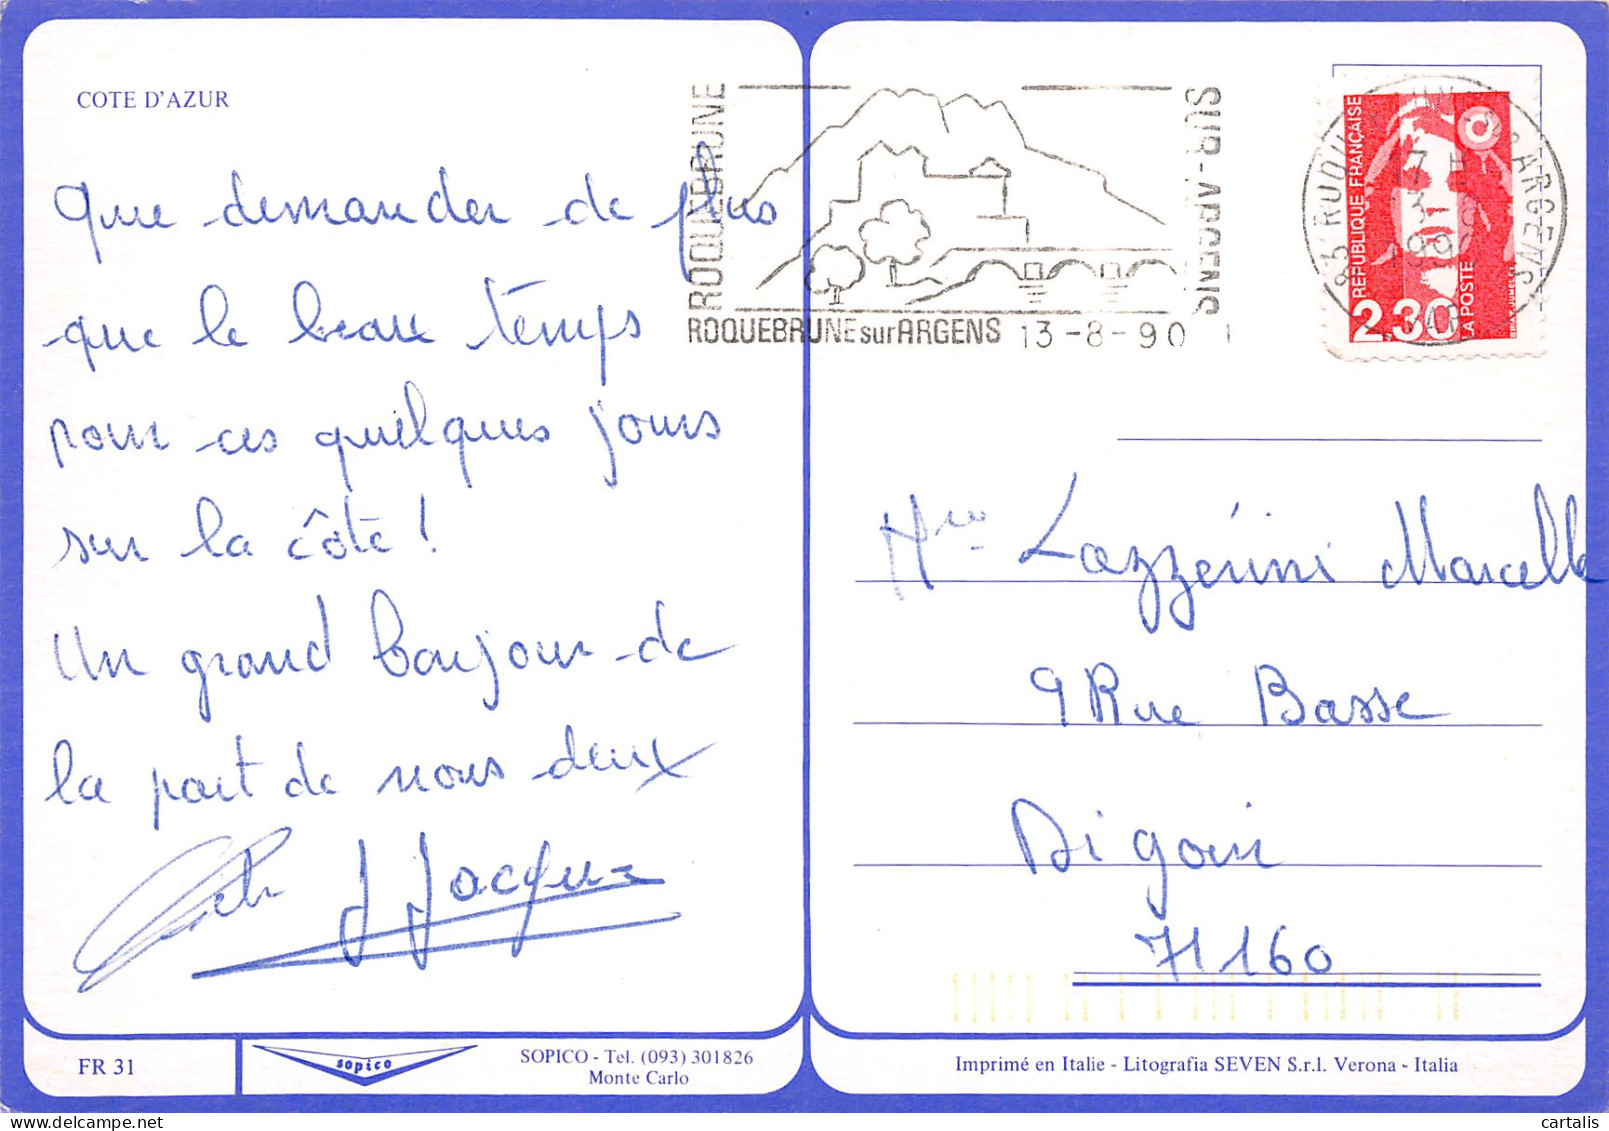 COTE D'AZUR
Que demander de plus
que le beau temps
pour ces quelques jours
sur la côte !
Un grand bonjour de
la part de nous deux
J Jacques
FR 31
sopico
SOPICO - Tel. (093) 301826
Monte Carlo
ROQUEBRUNE
SUR-ARGENS
ROQUEBRUNE sur ARGENS 13-8-90
REPUBLIQUE FRANÇAISE
2,30
LA POSTE
Mme Lazzérini Marcelle
9 Rue Basse
Digoin
71160
Imprimé en Italie - Litografia SEVEN S.r.l. Verona - Italia
cartalis